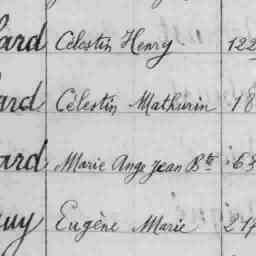 ard Célestin Henry 122
ard Célestin Mathurin 18
ard Marie Ange Jean Bte 63
uy Eugène Marie 24